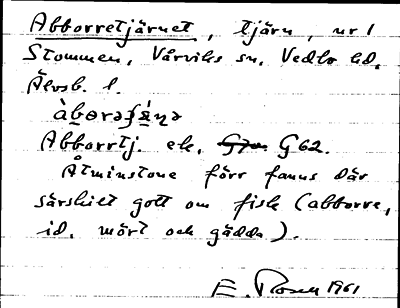 Abborretjärnet, tjärn, nr 1
Stommen, Vårviks sn, Vedbo hd,
Älvsb. l.
àbɵrəʃä́ɳə
Abborrtj. ek. G62.
Åtminstone förr fanns där
särskilt gott om fisk (abborre,
id, mört och gädda).
E. Rosen 1961